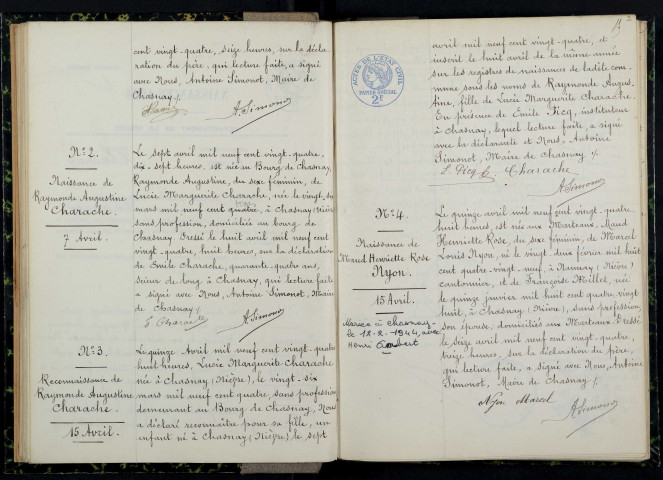 cent vingt-quatre, seize heures, sur la décla
ration du père, qui lecture faite, a signé
avec Nous, Antoine Simonot, Maire de
Chasnay./.
A. Simonot
N° 2.
Naissance de
Raymonde Augustine
Charache.
7 Avril.
Le sept avril mil neuf cent vingt-quatre,
dix-sept heures. est née au Bourg de Chasnay,
Raymonde Augustine, du sexe féminin, de
Lucie Marguerite Charache, née le vingt-six
mars mil neuf cent quatre, à Chasnay (Nièvre)
sans profession, domiciliée au bourg de
Chasnay. Dressé le huit avril mil neuf cent
vingt-quatre, huit heures, sur la déclaration
de Emile Charache, quarante-quatre ans,
scieur de long à Chasnay, qui lecture faite
a signé avec Nous, Antoine Simonot, Maire
de Chasnay./.
E Charache
A. Simonot
N° 3.
Reconnaissance de
Raymonde Augustine
Charache.
15 Avril.
Le quinze Avril mil neuf cent vingt-quatre
huit heures, Lucie Marguerite Charache
née à Chasnay (Nièvre), le vingt-six
mars mil neuf cent quatre, sans profession
demeurant au Bourg de Chasnay, Nous
a déclaré reconnaître pour sa fille, un
enfant né à Chasnay (Nièvre) le sept
ACTES DE L'ETAT CIVIL
PAPIER SPECIAL
2F
avril mil neuf cent vingt-quatre, et
inscrit le huit avril de la même année
sur les registres de naissance de ladite com-
mune sous les noms de Raymonde Augus-
tine, fille de Lucie Marguerite Charache.
En présence de Emile Picq, instituteur
à Chasnay, lequel lecture faite, a signé
avec la déclarante et Nous, Antoine
Simonot, Maire de Chasnay ./.
E. Picq
Charache
A. Simonot
N° 4.
Naissance de
Maud Henriette Rose
Nyon.
15 Avril.
Mariée à Chasnay
le 12-2-1944, avec
Henri
Le quinze avril mil neuf cent vingt-quatre
huit heures, est née aux Marteaux, Maud
Henriette Rose, du sexe féminin, de Marcel
Louis Nyon, né le vingt-deux février mil huit
cent quatre-vingt-neuf, à Nannay (Nièvre)
cantonnier, et de Françoise Millet, née
le quinze janvier mil huit cent quatre vingt
huit, à Chasnay (Nièvre), sans profession,
son épouse, domiciliés aux Marteaux. Dressé
le seize avril mil neuf cent vingt-quatre,
treize heures, sur la déclaration du père,
qui lecture faite, a signé avec Nous, Antoine
Simonot, Maire de Chasnay ./.
Nyon Marcel
A. Simonot